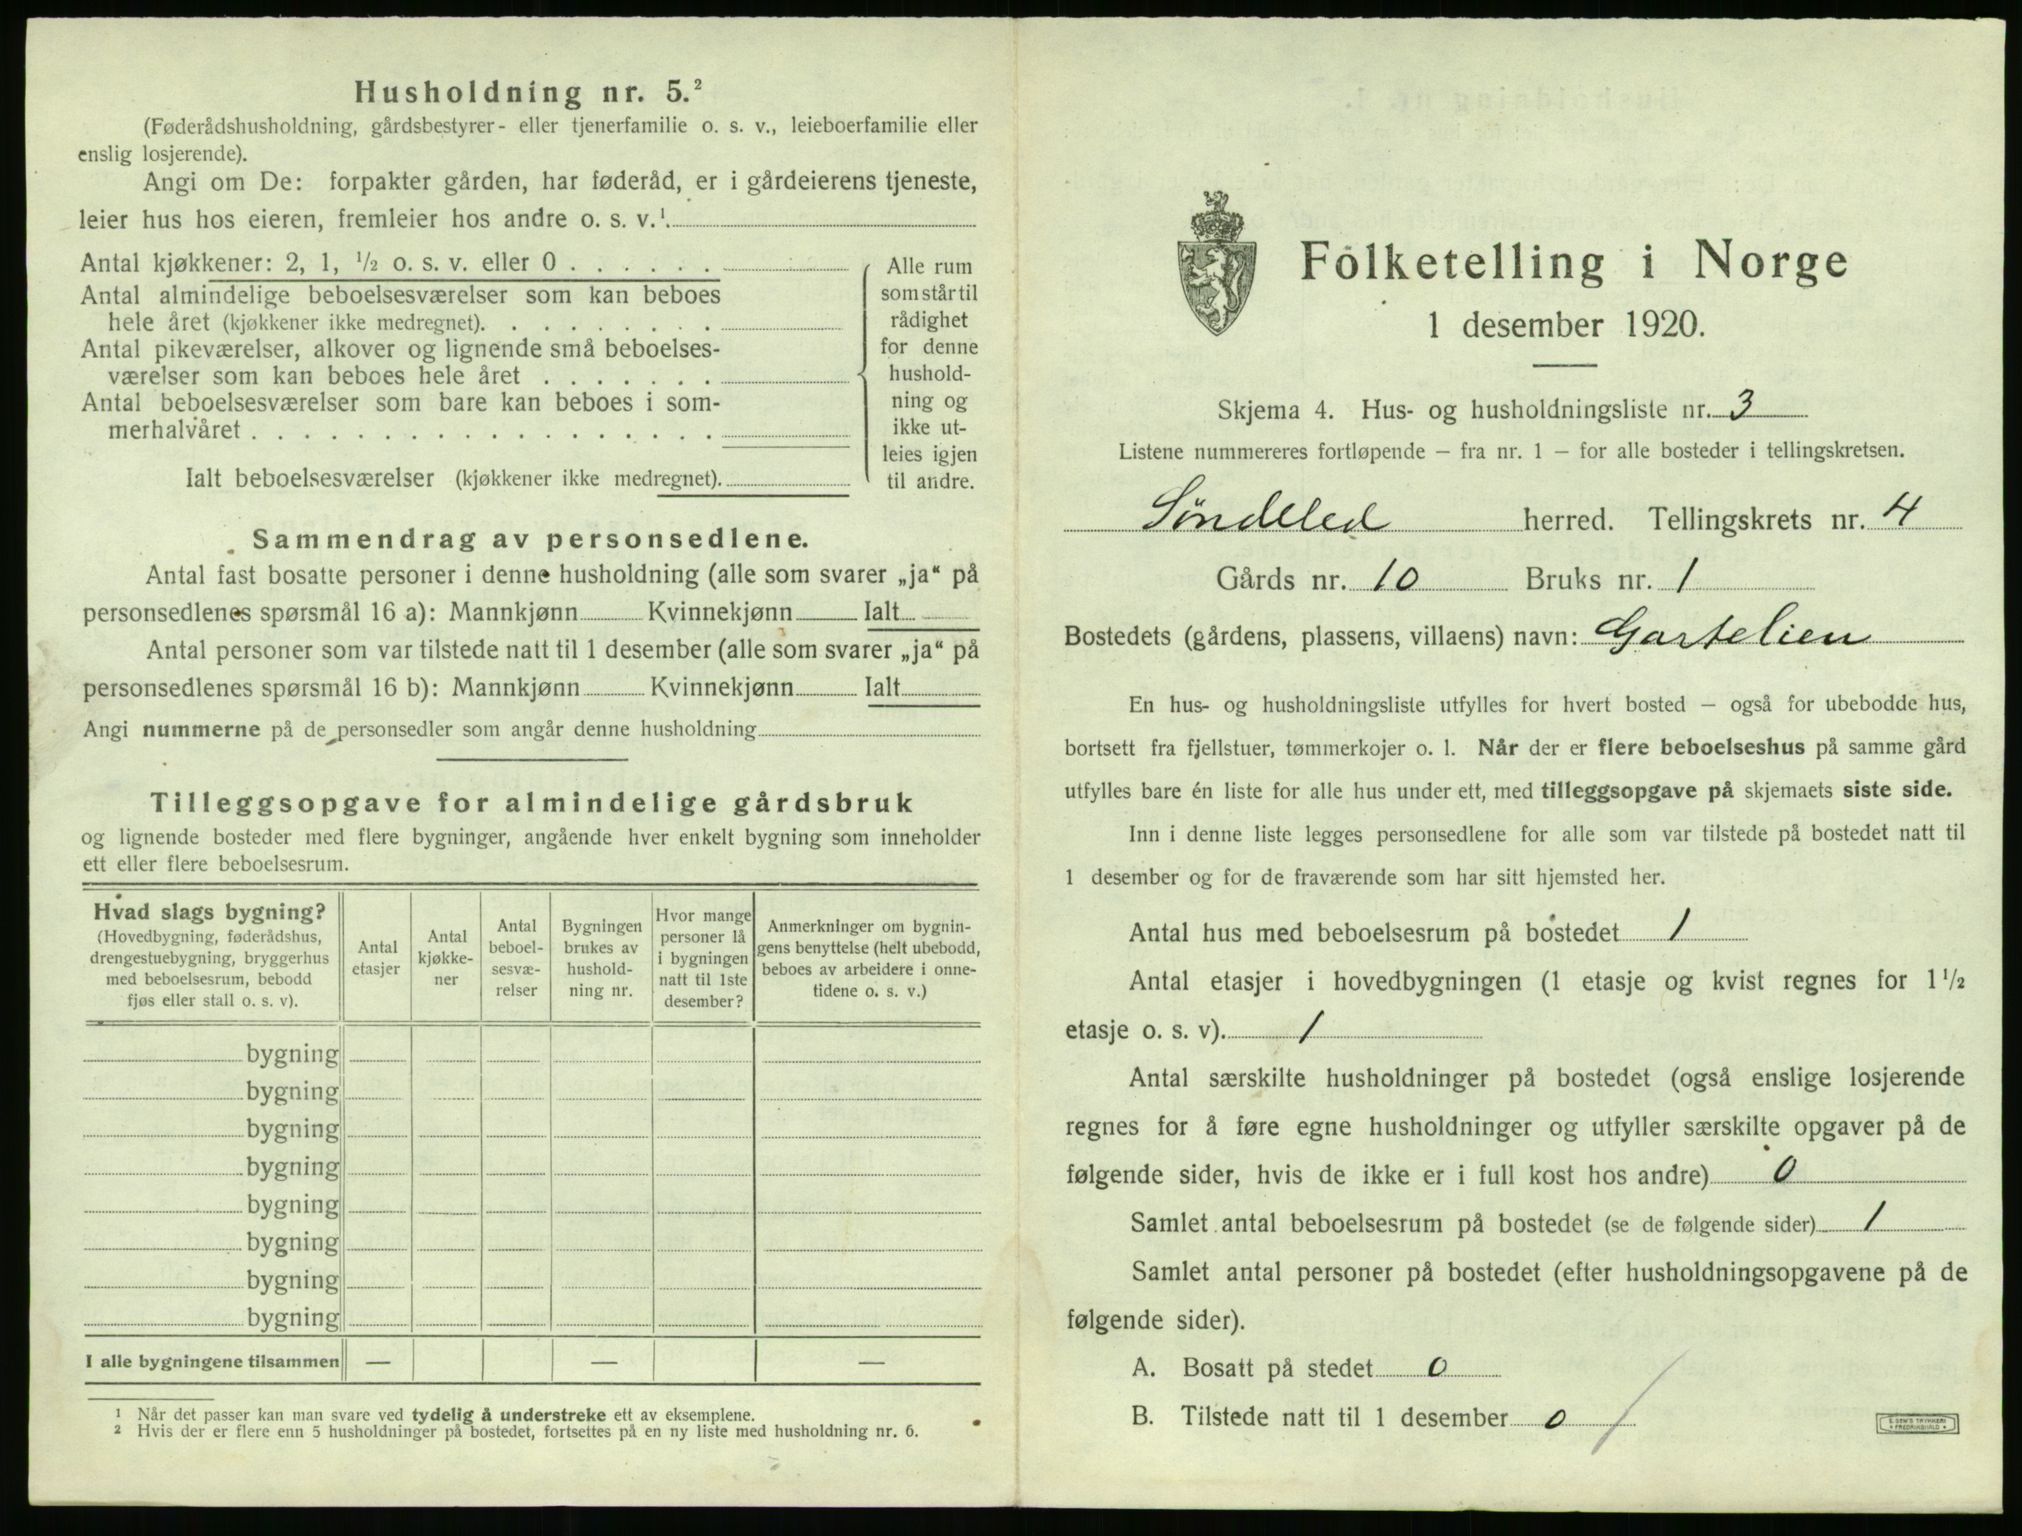 Husholdning nr. 5.²
(Føderådshusholdning, gårdsbestyrer- eller tjenerfamilie o. s. v., leieboerfamilie eller
enslig losjerende).
Angi om De: forpakter gården, har føderåd, er i gårdeierens tjeneste,
leier hus hos eieren, fremleier hos andre o. s. v.¹
Antal kjøkkener: 2, 1, ½ o. s. v. eller 0 . . . . . .
Antal almindelige beboelsesværelser som kan beboes
hele året (kjøkkener ikke medregnet). . . . . . . . .
Antal pikeværelser, alkover og lignende små beboelses-
værelser som kan beboes hele året . . . . . . .
Antal beboelsesværelser som bare kan beboes i som-
merhalvåret . . . . . . . . . . . . . . . . . .
Ialt beboelsesværelser (kjøkkener ikke medregnet).
Alle rum
som står til
rådighet
for denne
hushold-
ning og
ikke ut-
leies igjen
til andre.
Sammendrag av personsedlene.
Antal fast bosatte personer i denne husholdning (alle som svarer „ja“ på
personsedlenes spørsmål 16 a): Mannkjønn Kvinnekjønn Ialt
Antal personer som var tilstede natt til 1 desember (alle som svarer „ja“ på
personsedlenes spørsmål 16 b): Mannkjønn Kvinnekjønn Ialt
Angi nummerne på de personsedler som angår denne husholdning
Tilleggsopgave for almindelige gårdsbruk
og lignende bosteder med flere bygninger, angående hver enkelt bygning som inneholder
ett eller flere beboelsesrum.
Hvad slags bygning?
(Hovedbygning, føderådshus,
drengestuebygning, bryggerhus
med beboelsesrum, bebodd
fjøs eller stall o. s. v).
Antal
etasjer
Antal
kjøkke-
ner
Antal
beboel-
sesvæ-
relser
Bygningen
brukes av
hushold-
ning nr.
Hvor mange
personer lå
i bygningen
natt til 1ste
desember?
Anmerkninger om bygnin-
gens benyttelse (helt ubebodd,
beboes av arbeidere i onne-
tidene o. s. v.)
bygning
bygning
bygning
bygning
bygning
bygning
bygning
bygning
I alle bygningene tilsammen — — —
¹ Når det passer kan man svare ved tydelig å understreke ett av eksemplene.
² Hvis der er flere enn 5 husholdninger på bostedet, fortsettes på en ny liste med husholdning nr. 6.
Folketelling i Norge
1 desember 1920.
Skjema 4. Hus- og husholdningsliste nr. 3
Listene nummereres fortløpende — fra nr. 1 — for alle bosteder i tellingskretsen.
Søndeled herred. Tellingskrets nr. 4
Gårds nr. 10 Bruks nr. 1
Bostedets (gårdens, plassens, villaens) navn: Gartelien
En hus- og husholdningsliste utfylles for hvert bosted — også for ubebodde hus,
bortsett fra fjellstuer, tømmerkojer o. l. Når der er flere beboelseshus på samme gård
utfylles bare én liste for alle hus under ett, med tilleggsopgave på skjemaets siste side.
Inn i denne liste legges personsedlene for alle som var tilstede på bostedet natt til
1 desember og for de fraværende som har sitt hjemsted her.
Antal hus med beboelsesrum på bostedet 1
Antal etasjer i hovedbygningen (1 etasje og kvist regnes for 1½
etasje o. s. v). 1
Antal særskilte husholdninger på bostedet (også enslige losjerende
regnes for å føre egne husholdninger og utfyller særskilte opgaver på de
følgende sider, hvis de ikke er i full kost hos andre) 0
Samlet antal beboelsesrum på bostedet (se de følgende sider) 1
Samlet antal personer på bostedet (efter husholdningsopgavene på de
følgende sider).
A. Bosatt på stedet 0
B. Tilstede natt til 1 desember 0